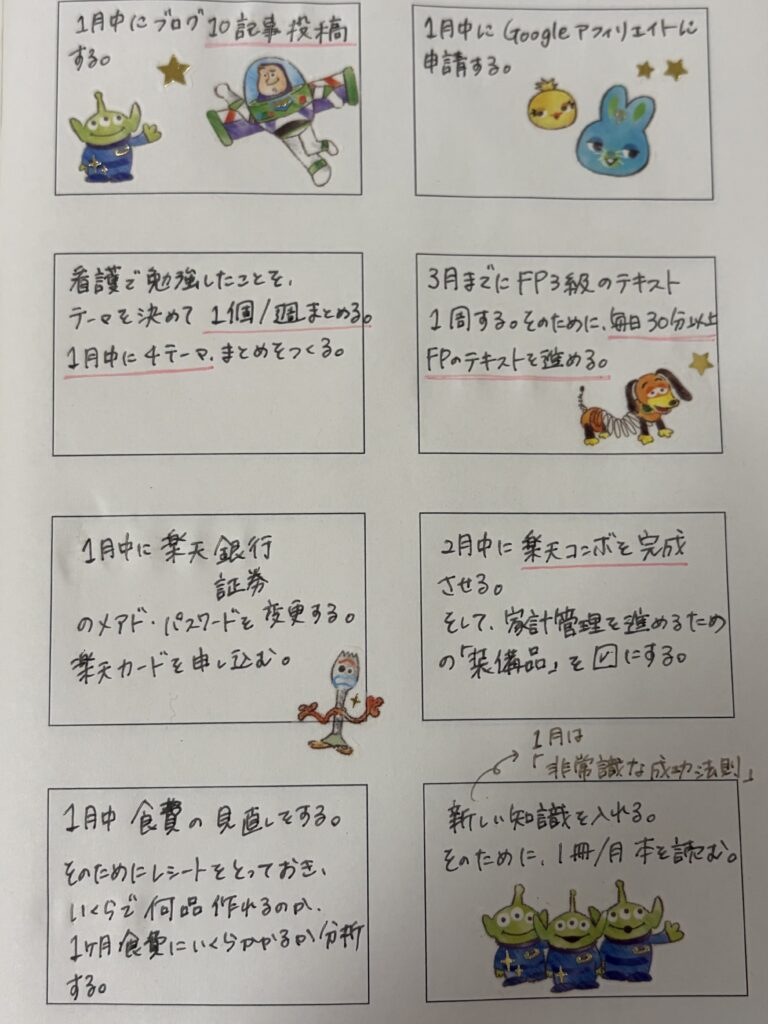 1月中にブログ 10記事投稿
する。
1月中に Googleアフィリエイトに
申請する。
看護で勉強したことを、
テーマを決めて 1個/週まとめる。
1月中に4テーマ、まとめをつくる。
3月までに FP3級のテキスト
1周する。そのために、毎日30分以上
FPのテキストを進める。
1月中に 楽天 銀行
証券
のメアド・パスワードを変更する。
楽天カードを申し込む。
2月中に 楽天コンボを完成
させる。
そして、家計管理を進めるため
の「装備品」を☑にする。
1月中 食費の見直しをする。
そのためにレシートをとっておき、
いくらで何品作れるのか、
1ヶ月食費にいくらかかるか分析
する。
1月は
「非常識な成功法則」
新しい知識を入れる。
そのために、1冊/月 本を読む。